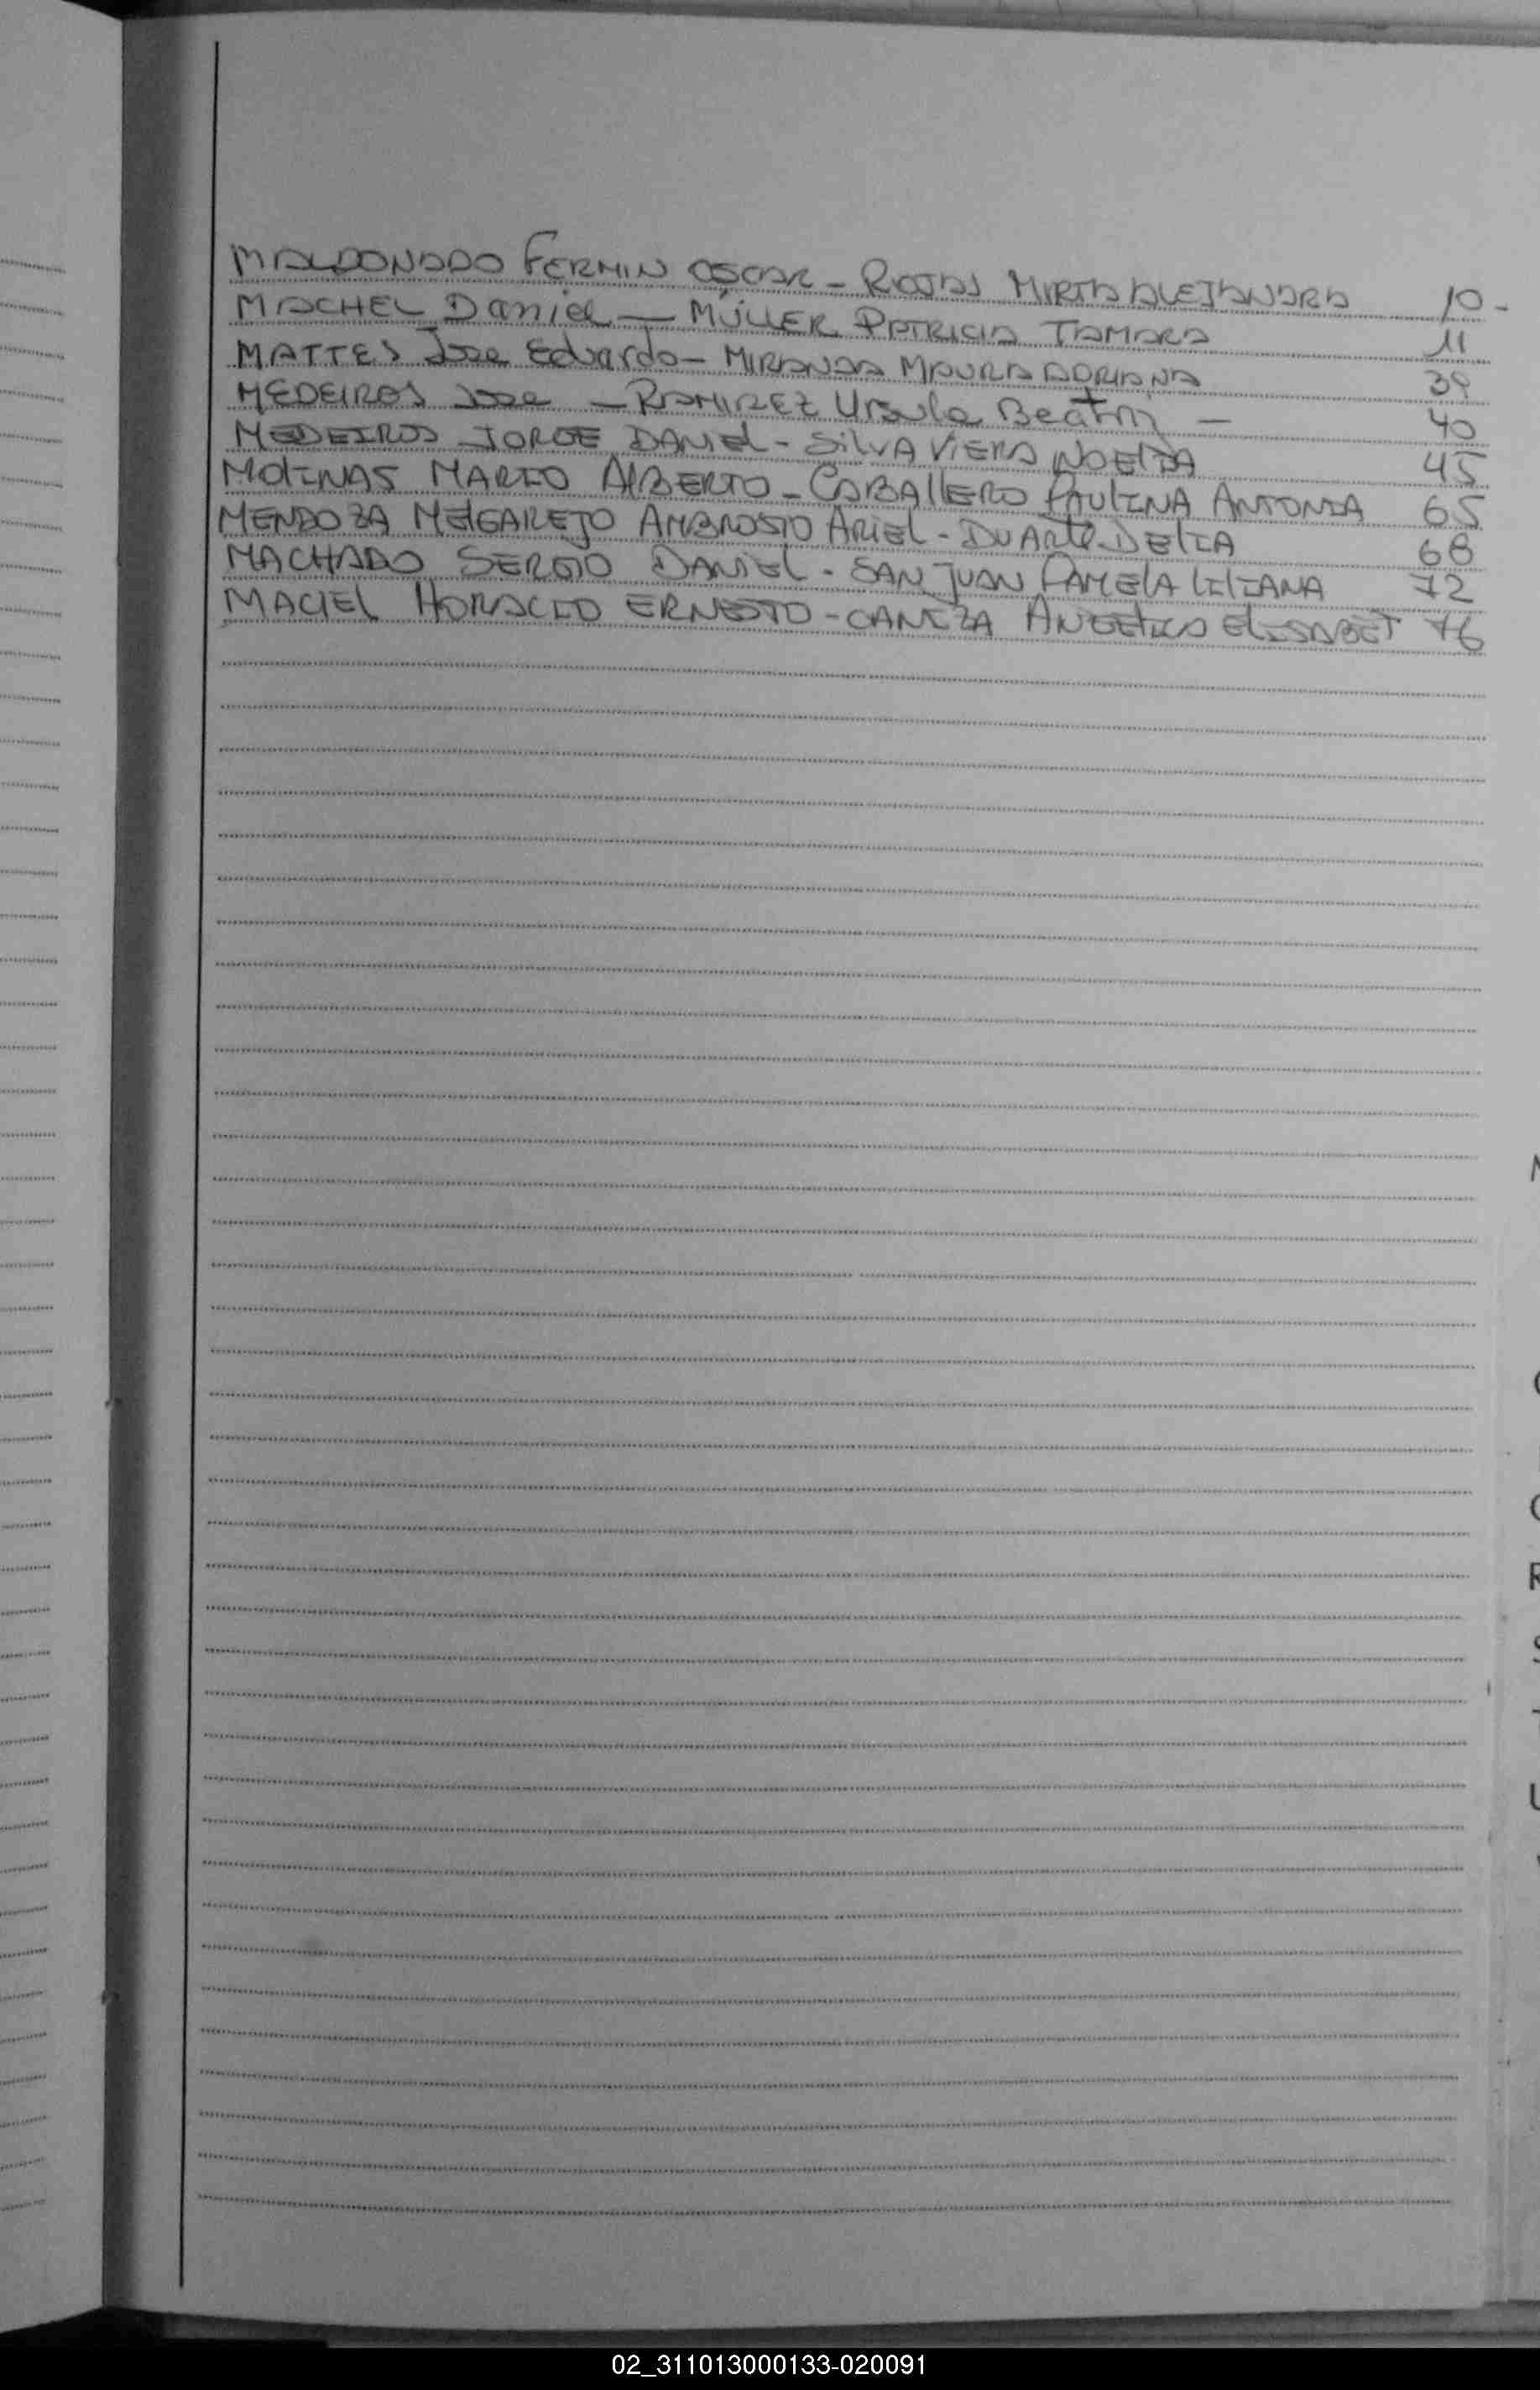 MALDONADO FERMIN OSCAR - ROJAS MIRTA ALEJANDRA 10 -
MACHEL Daniel — MÜLLER PATRICIA TAMARA 11
MATTES Jose Eduardo - MIRANDA MAURA ADRIANA 39
MEDEIROS Jose - RAMIREZ Ursula Beatriz — 40
MEDEIROS JORGE DANIEL - SILVA VIERA NOELIA 45
MOLINAS MARIO ALBERTO - CABALLERO PAULINA ANTONIA 65
MENDOZA MELGAREJO AMBROSIO ARIEL - DUARTE DELIA 68
MACHADO SERGIO DANIEL - SAN JUAN PAMELA LILIANA 72
MACIEL HORACIO ERNESTO - CANIZA ANGELICA ELISABET 76
02_311013000133-020091